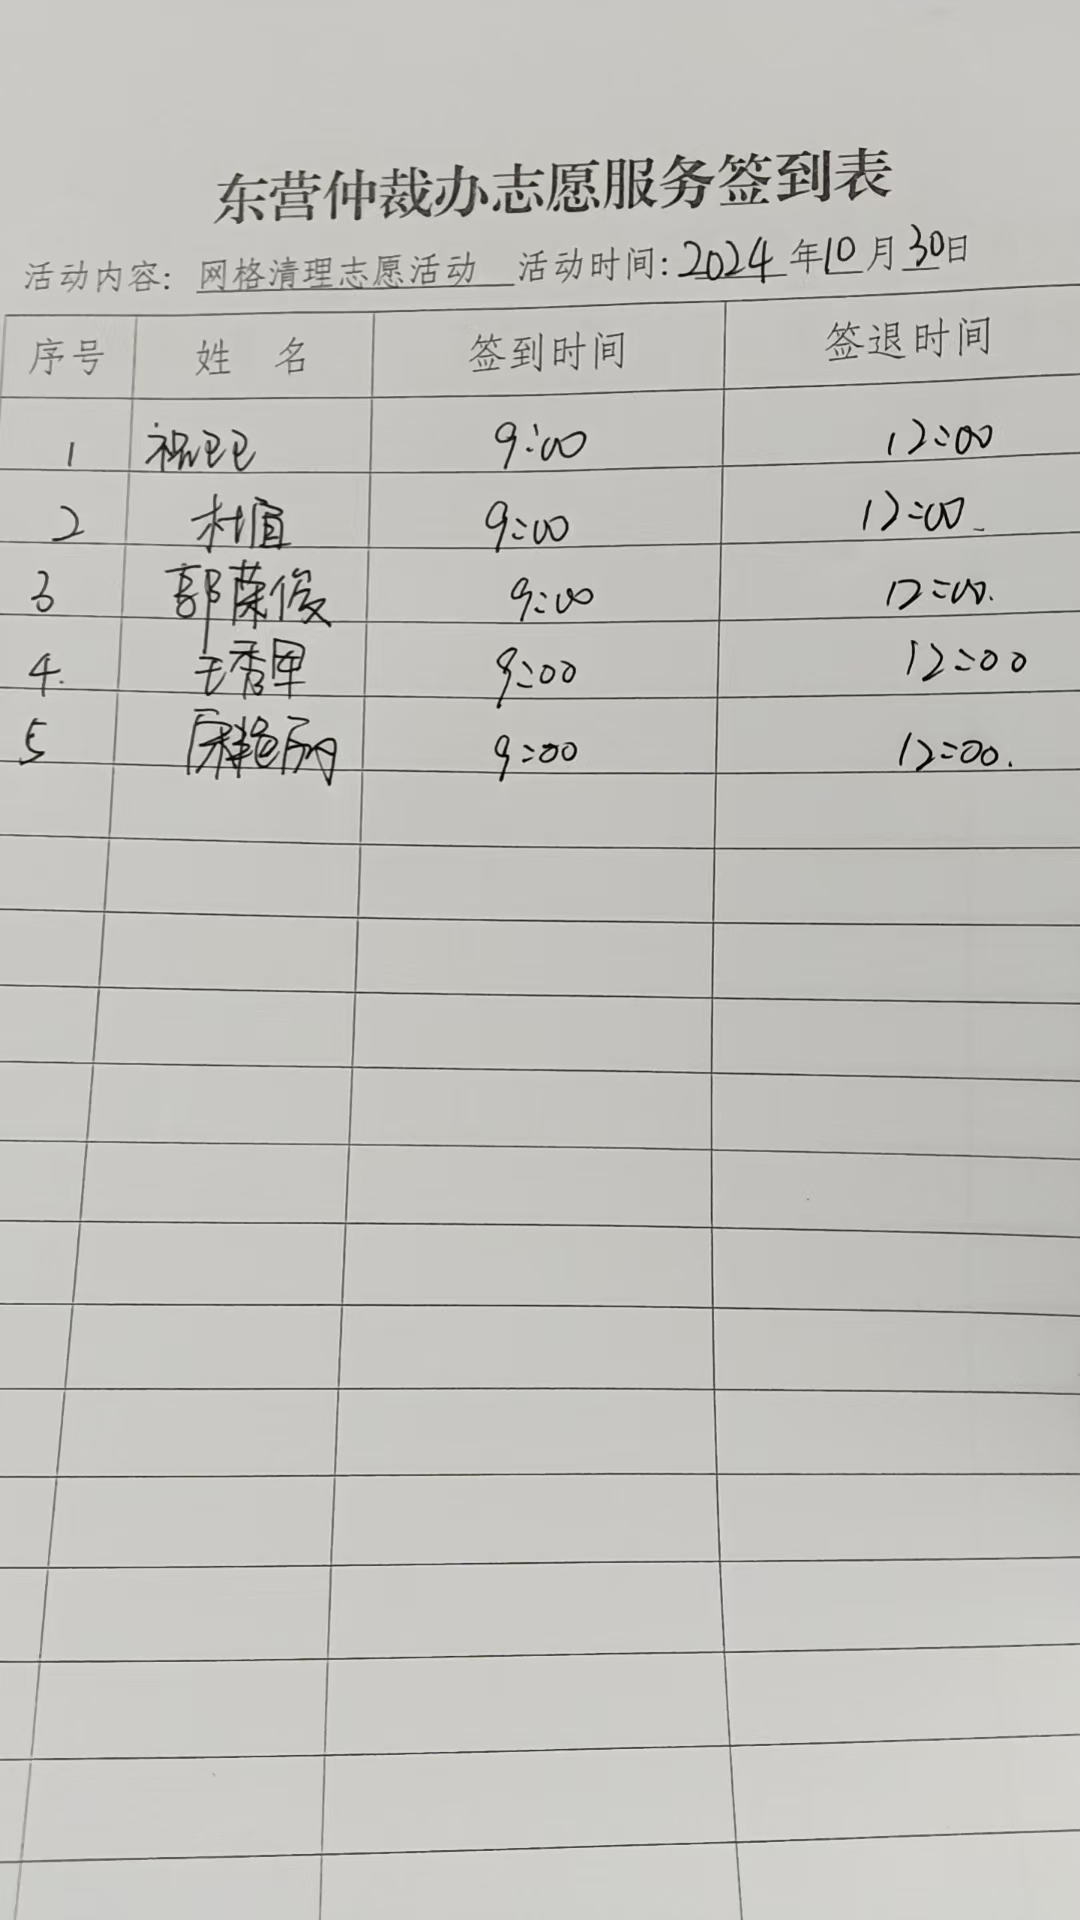 东营仲裁办志愿服务签到表
活动内容: 网格清理志愿活动 活动时间: 2024年10月30日
序号 姓 名 签到时间 签退时间
1 祝巴巴 9:00 12:00
2 杜值 9:00 12:00
3 郭荣俊 9:00 12:00.
4. 王秀军 9:00 12:00
5 9:00 12:00.